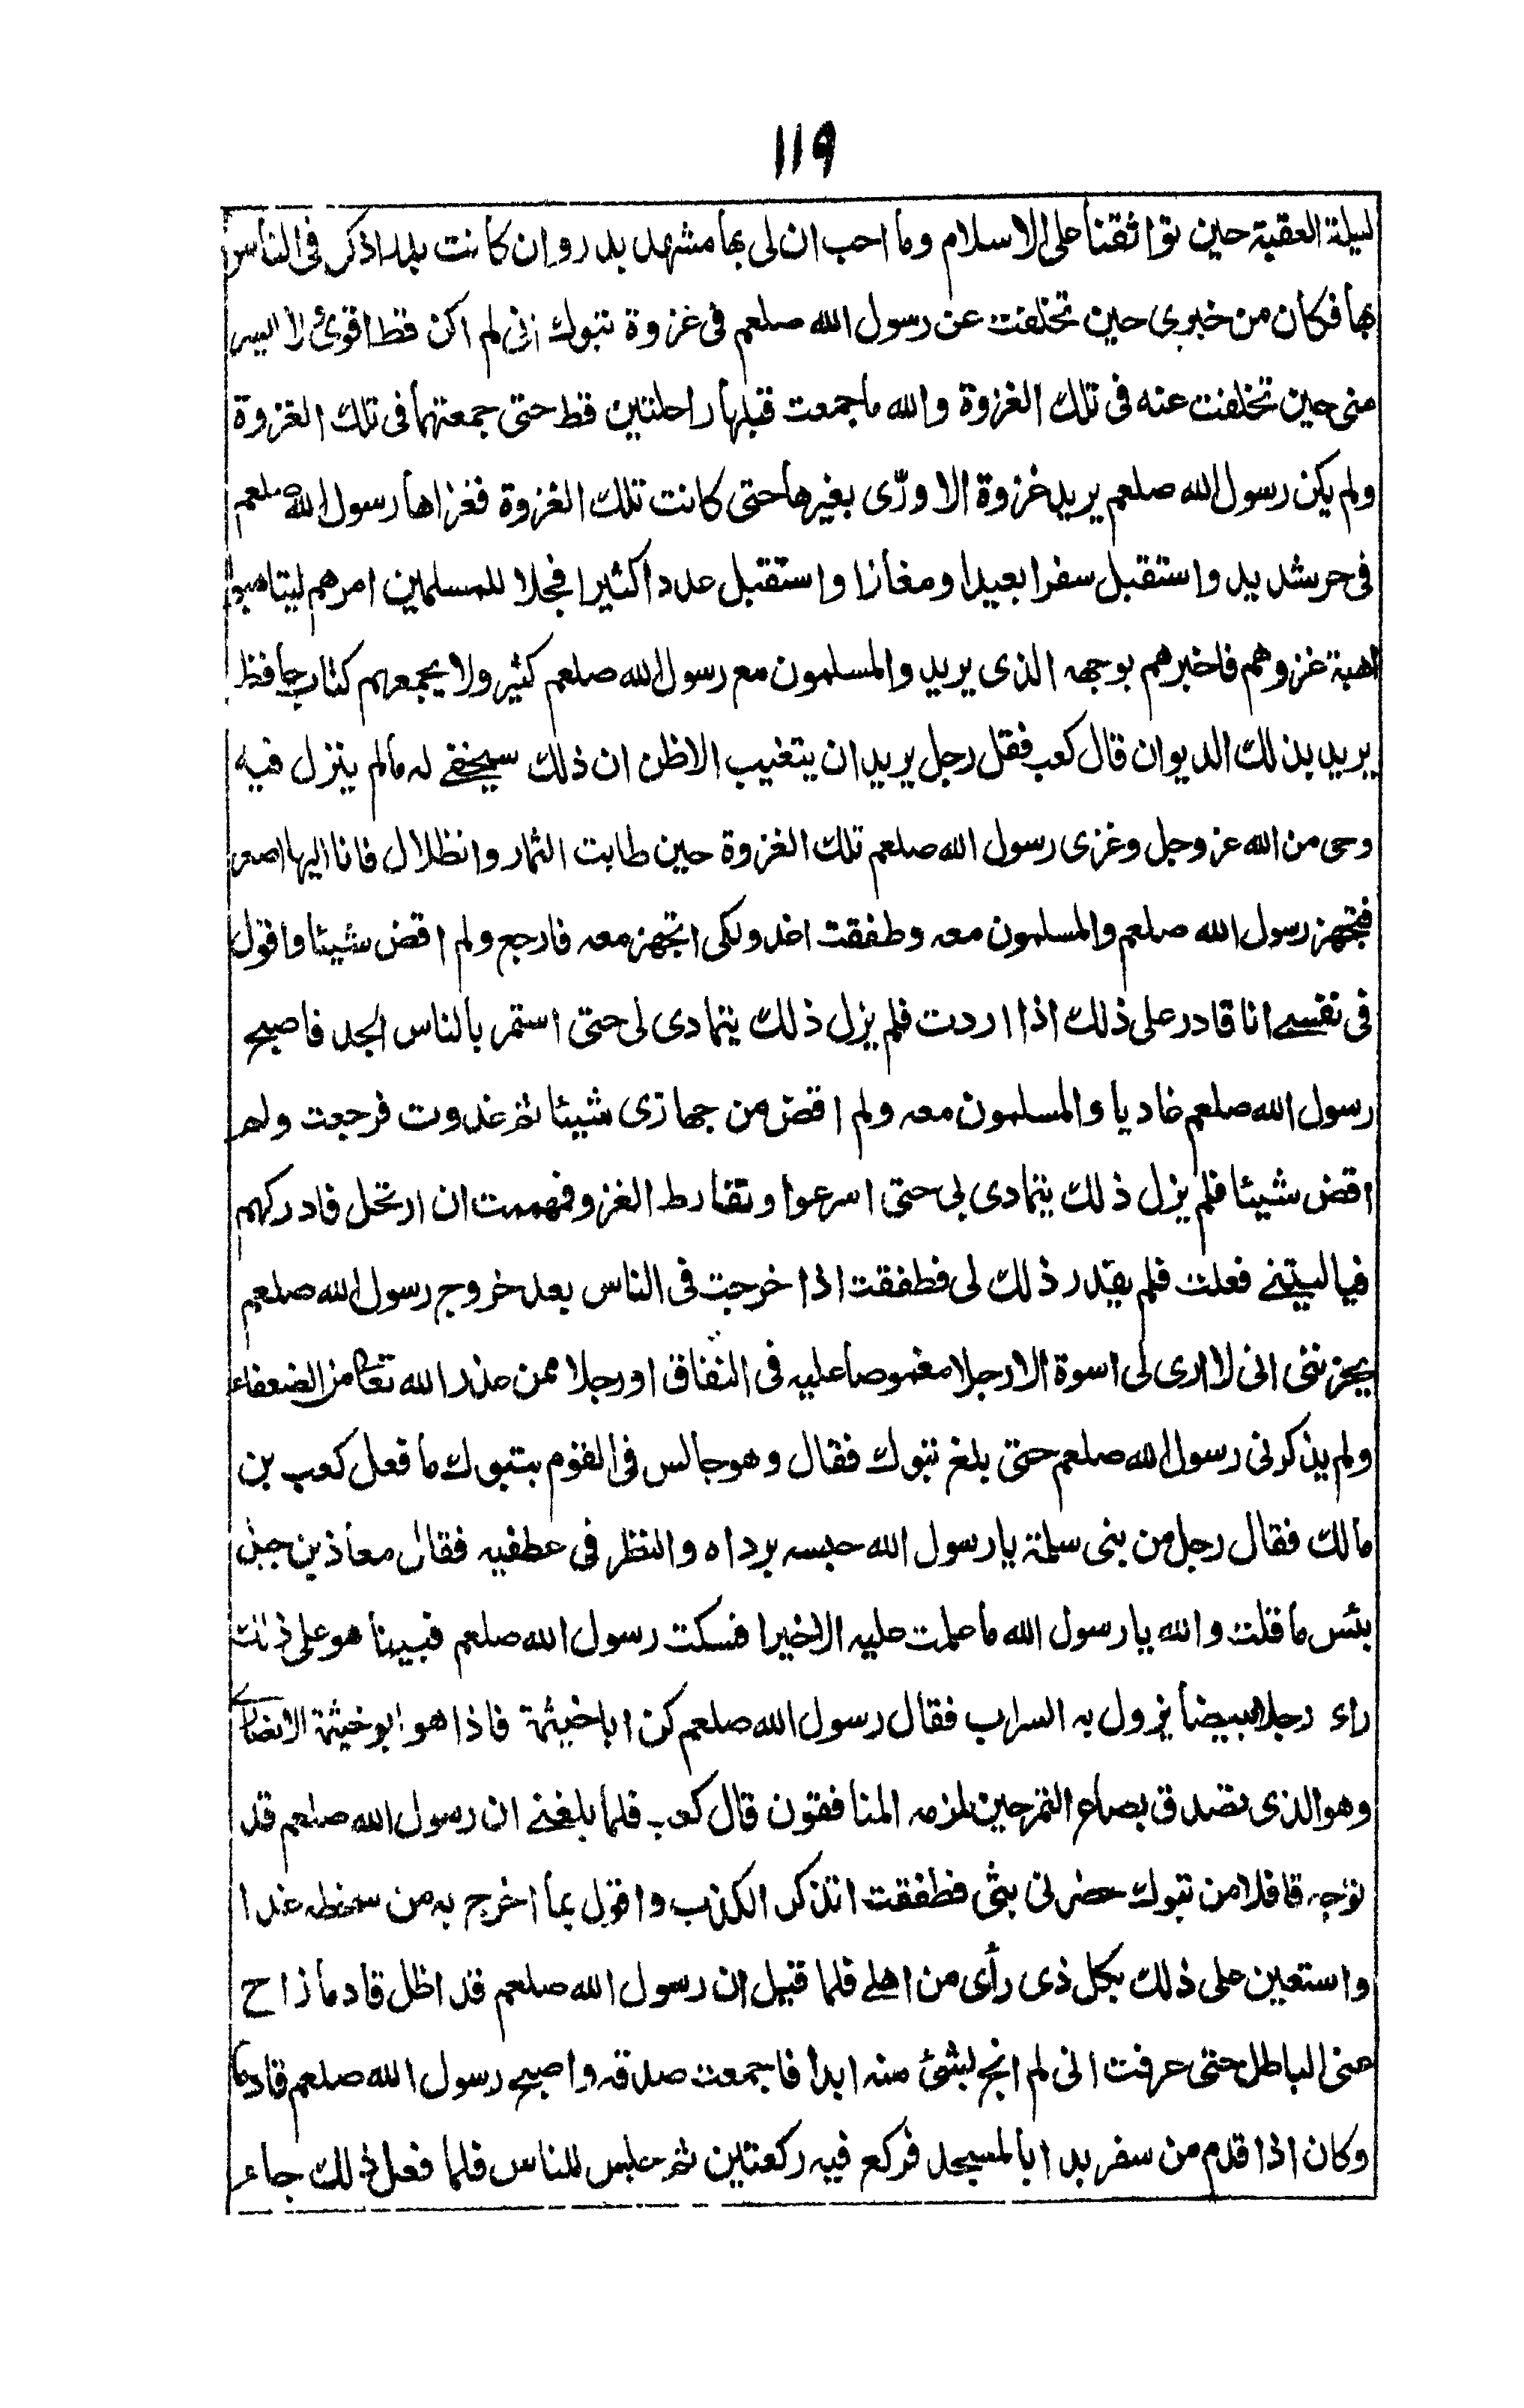 ١١٩
ليلة العقبة حين تواثقنا على الاسلام وما احب ان لى بها مشهد بدر وان كانت بدر اذكر فى الناس
بها فكان من خبرى حين تخلفت عن رسول الله صلعم فى غزوة تبوك انى لم اكن قط اقوى ولا ايسر
منى حين تخلفت عنه فى تلك الغزوة والله ما جمعت قبلها راحلتين قط حتى جمعتهما فى تلك الغزوة
ولم يكن رسول الله صلعم يريد غزوة الا ورّى بغيرها حتى كانت تلك الغزوة فغزاها رسول الله صلعم
فى حر شديد واستقبل سفرا بعيدا ومغازا واستقبل عددا كثيرا فجلا للمسلمين امرهم ليتاهبوا
اهبة غزوهم فاخبرهم بوجهه الذى يريد والمسلمون مع رسول الله صلعم كثير ولا يجمعهم كتاب حافظ
يريد بذلك الديوان قال كعب فقل رجل يريد ان يتغيب الا ظن ان ذلك سيخفى له مالم ينزل فيه
وحى من الله عز وجل وغزى رسول الله صلعم تلك الغزوة حين طابت الثمار وانظلال فانا اليها اصعر
فتجهز رسول الله صلعم والمسلمون معه وطفقت اغدو لكى اتجهز معه فارجع ولم اقض شيئا واقول
فى نفسى انا قادر على ذلك اذا اردت فلم يزل ذلك يتمادى لى حتى استمر بالناس الجد فاصبح
رسول الله صلعم غاديا والمسلمون معه ولم اقض من جهازى شيئا ثم غدوت فرجعت ولم
اقض شيئا فلم يزل ذلك يتمادى بى حتى اسرعوا وتفارط الغزو فهممت ان ارتحل فادركهم
فيا ليتنى فعلت فلم يقدر ذلك لى فطفقت اذا خرجت فى الناس بعد خروج رسول الله صلعم
يحزننى انى لا ارى لى اسوة الا رجلا مغموصا عليه فى النفاق او رجلا ممن عذر الله تعا من الضعفاء
ولم يذكرنى رسول الله صلعم حتى بلغ تبوك فقال وهو جالس فى القوم بتبوك ما فعل كعب بن
مالك فقال رجل من بنى سلمة يا رسول الله حبسه برداه والنظر فى عطفيه فقال معاذ بن جبل
بئس ما قلت والله يا رسول الله ما علمت عليه الا خيرا فسكت رسول الله صلعم فبينا هو على ذلك
راء رجلا مبيضا يزول به السراب فقال رسول الله صلعم كن ابا خيثمة فاذا هو ابو خيثمة الانصارى
وهو الذى تصدق بصاع التمر حين لمزه المنافقون قال كعب فلما بلغنى ان رسول الله صلعم قد
توجه قافلا من تبوك حضرنى بثى فطفقت اتذكر الكذب واقول بما اخرج به من سخطه غدا
واستعين على ذلك بكل ذى رأى من اهلى فلما قيل ان رسول الله صلعم قد اظل قادما زاح
عنى الباطل حتى عرفت انى لم انج بشئ منه ابدا فاجمعت صدقه واصبح رسول الله صلعم قادما
وكان اذا قدم من سفر بدا بالمسجد فركع فيه ركعتين ثم جلس للناس فلما فعل ذلك جاء